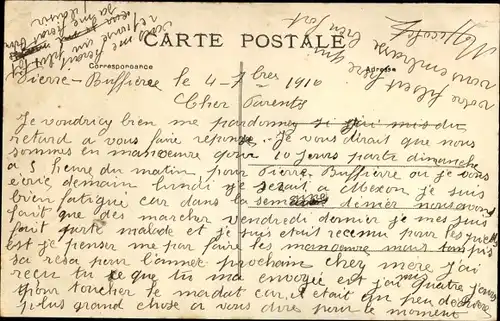 CARTE POSTALE
Correspondance
Adresse
Pierre-Buffière le 4-7bres 1910
Cher Parents
Je voudriez bien me pardonnez si j'ai mis du
retard a vous faire réponse. Je vous dirait que nous
sommes en manoeuvre pour 10 jours parte dimanche
a 5 heure du matin pour Pierre Buffière ou je vous
écric demain lundi je serait a Meson je suis
bien fatigue car dans la semaine dernier nous avons
fait que des marcher vendredi dernier je mes suis
fait porte malade et je suis etait recenu pour les
est je penser me par faire les manoeuvre mais tant pis
sa resa pour l'annee prochain cher mère j'ai
reçu tu ce que tu ma envoyié est j'ai mis quatre jours
pour toucher le madat car il était un peu
plus grand chose a vous dire pour le moment
votre fils qui
vous embrasse
bien fort